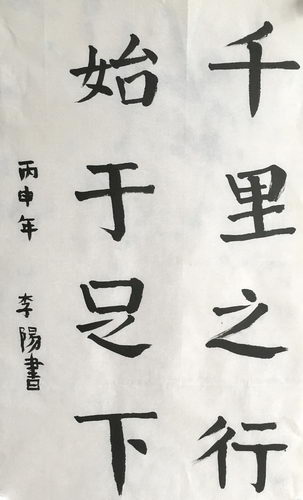 千里之行
始于足下
丙申年 李陽書